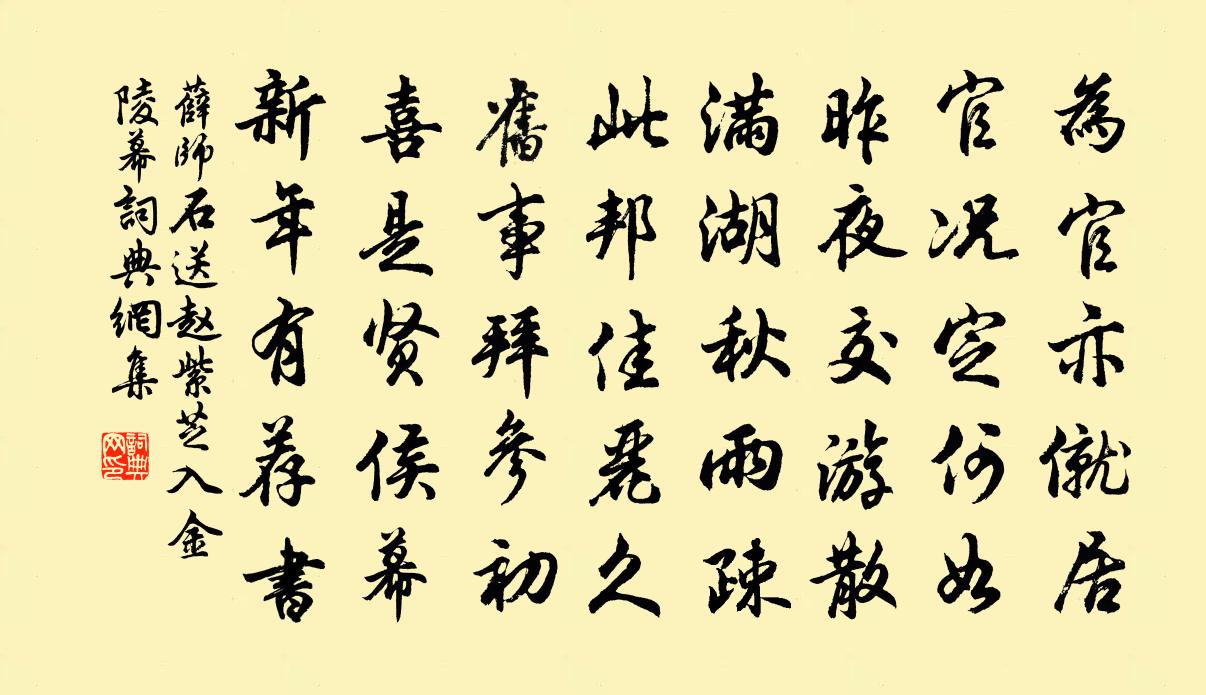 為官亦僦居
官况定何如
昨夜交游散
满湖秋雨疎
此邦佳麗久
舊事拜參初
喜是贤侯幕
新年有荐書
薛師石送趙紫芝入金
陵幕詞典網集
詞典网印